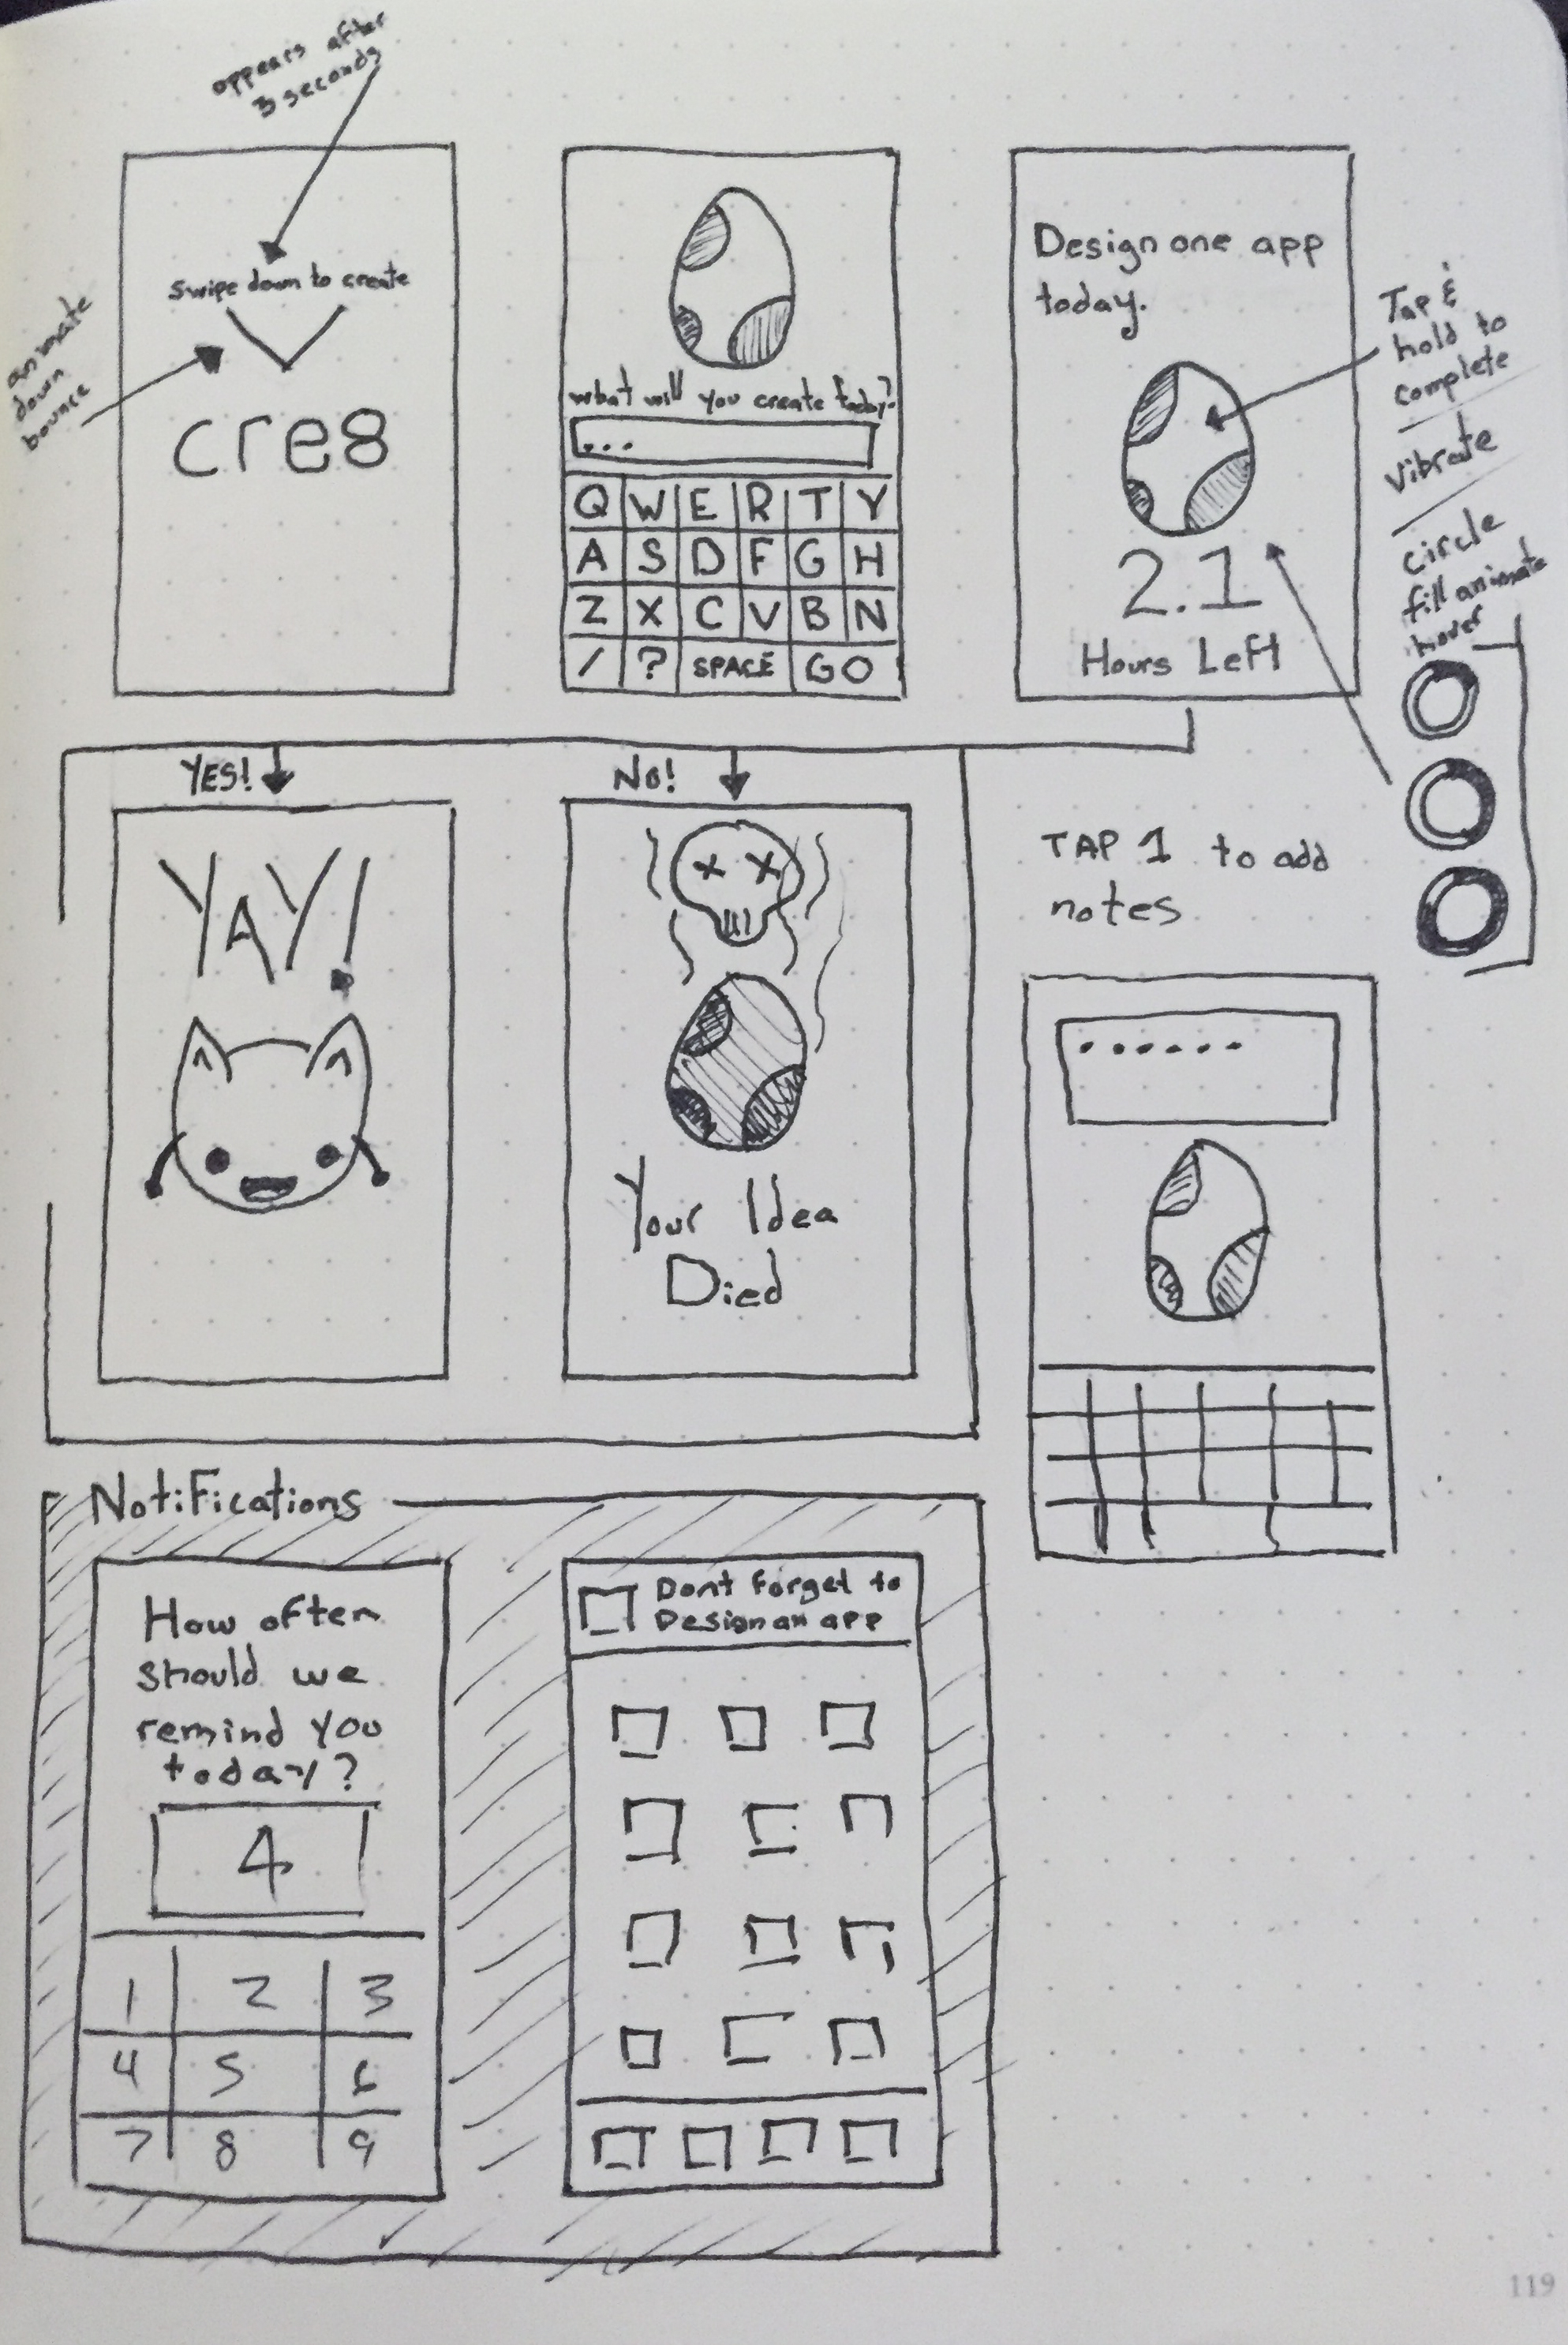 appears after
3 seconds
Swipe down to create
animate
down
bounce
cre8
what will you create today?
...
Q W E R T Y
A S D F G H
Z X C V B N
/ ? SPACE GO
Design one app
today.
2.1
Hours Left
Tap &
hold to
complete
vibrate
circle
fill animate
hover
YES!
YAY!
NO!
Your Idea
Died
TAP 1 to add
notes
......
Notifications
How often
should we
remind you
today?
4
1 2 3
4 5 6
7 8 9
Dont forget to
Design an app
119